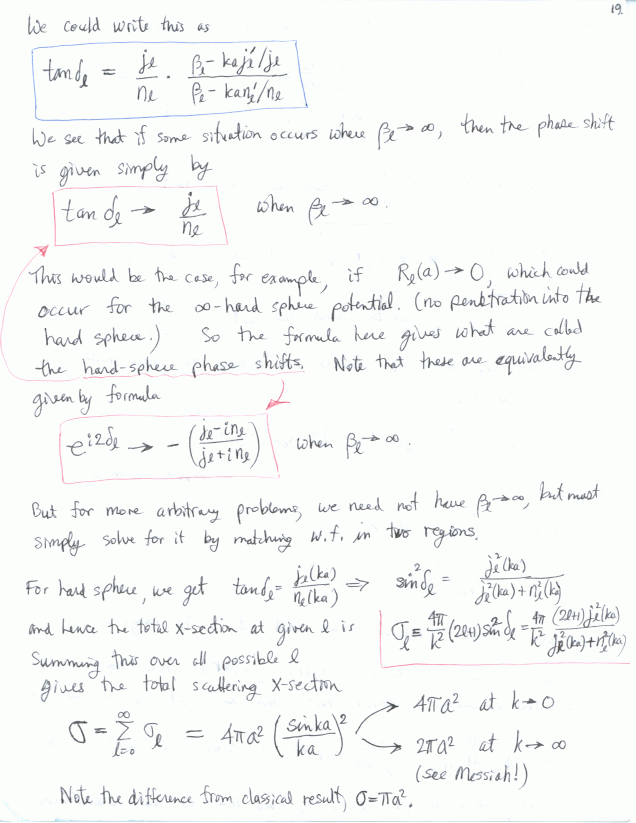 19.
We could write this as
tan δ_l = j_l/n_l · (β_l - ka j_l'/j_l)/(β_l - ka n_l'/n_l)
We see that if some situation occurs where β_l → ∞, then the phase shift
is given simply by
tan δ_l → j_l/n_l when β_l → ∞.
This would be the case, for example, if R_l(a) → 0, which could
occur for the ∞-hard sphere potential. (no penetration into the
hard sphere.) So the formula here gives what are called
the hard-sphere phase shifts. Note that these are equivalently
given by formula
e^{i2δ_l} → - ((j_l - i n_l)/(j_l + i n_l)) when β_l → ∞.
But for more arbitrary problems, we need not have β_l → ∞, but must
simply solve for it by matching w.f. in two regions.
For hard sphere, we get tan δ_l = j_l(ka)/n_l(ka) ⟹ sin² δ_l = j_l²(ka)/(j_l²(ka) + n_l²(ka))
and hence the total x-section at given l is σ_l ≡ 4π/k² (2l+1) sin² δ_l = 4π/k² (2l+1) j_l²(ka)/(j_l²(ka) + n_l²(ka))
Summing this over all possible l
gives the total scattering x-section
σ = Σ_{l=0}^{∞} σ_l = 4πa² (sin ka/ka)² → 4πa² at k → 0
→ 2πa² at k → ∞
(see Messiah!)
Note the difference from classical result, σ = πa².